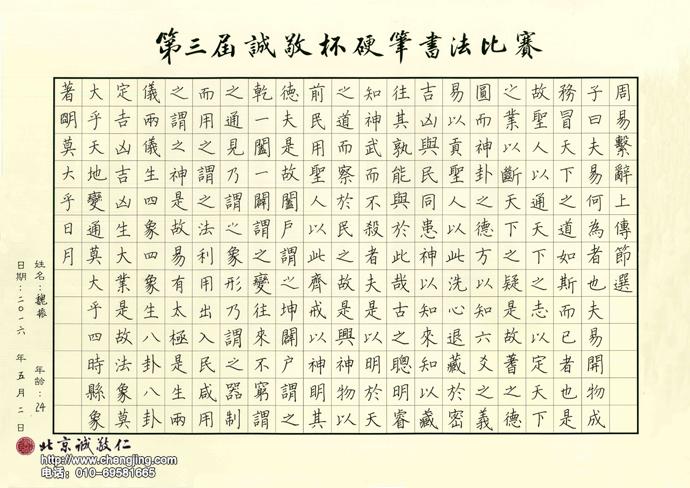 第三屆誠敬杯硬筆書法比賽
周易繫辭上傳節選
子曰夫易何為者也夫易開物成
務冒天下之道如斯而已者也是
故聖人以通天下之志以定天下
之業以斷天下之疑是故蓍之德
圓而神卦之德方以知六爻之義
易以貢聖人以此洗心退藏於密
吉凶與民同患神以知來知以藏
往其孰能與於此哉古之聰明睿
知神武而不殺者夫是以明於天
之道而察於民之故是興神物以
前民用聖人以此齊戒以神明其
德夫是故闔戶謂之坤闢户謂之
乾一闔一闢謂之變往來不窮謂
之通見乃謂之象形乃謂之器制
而用之謂之法利用出入民咸用
之謂之神是故易有太極是生兩
儀兩儀生四象四象生八卦八卦
定吉凶吉凶生大業是故法象莫
大乎天地變通莫大乎四時縣象
著明莫大乎日月
姓名：魏振 年齡：24
日期：二〇一六年五月二日
北京诚敬仁
http://www.chengjing.com
电话：010-69581665